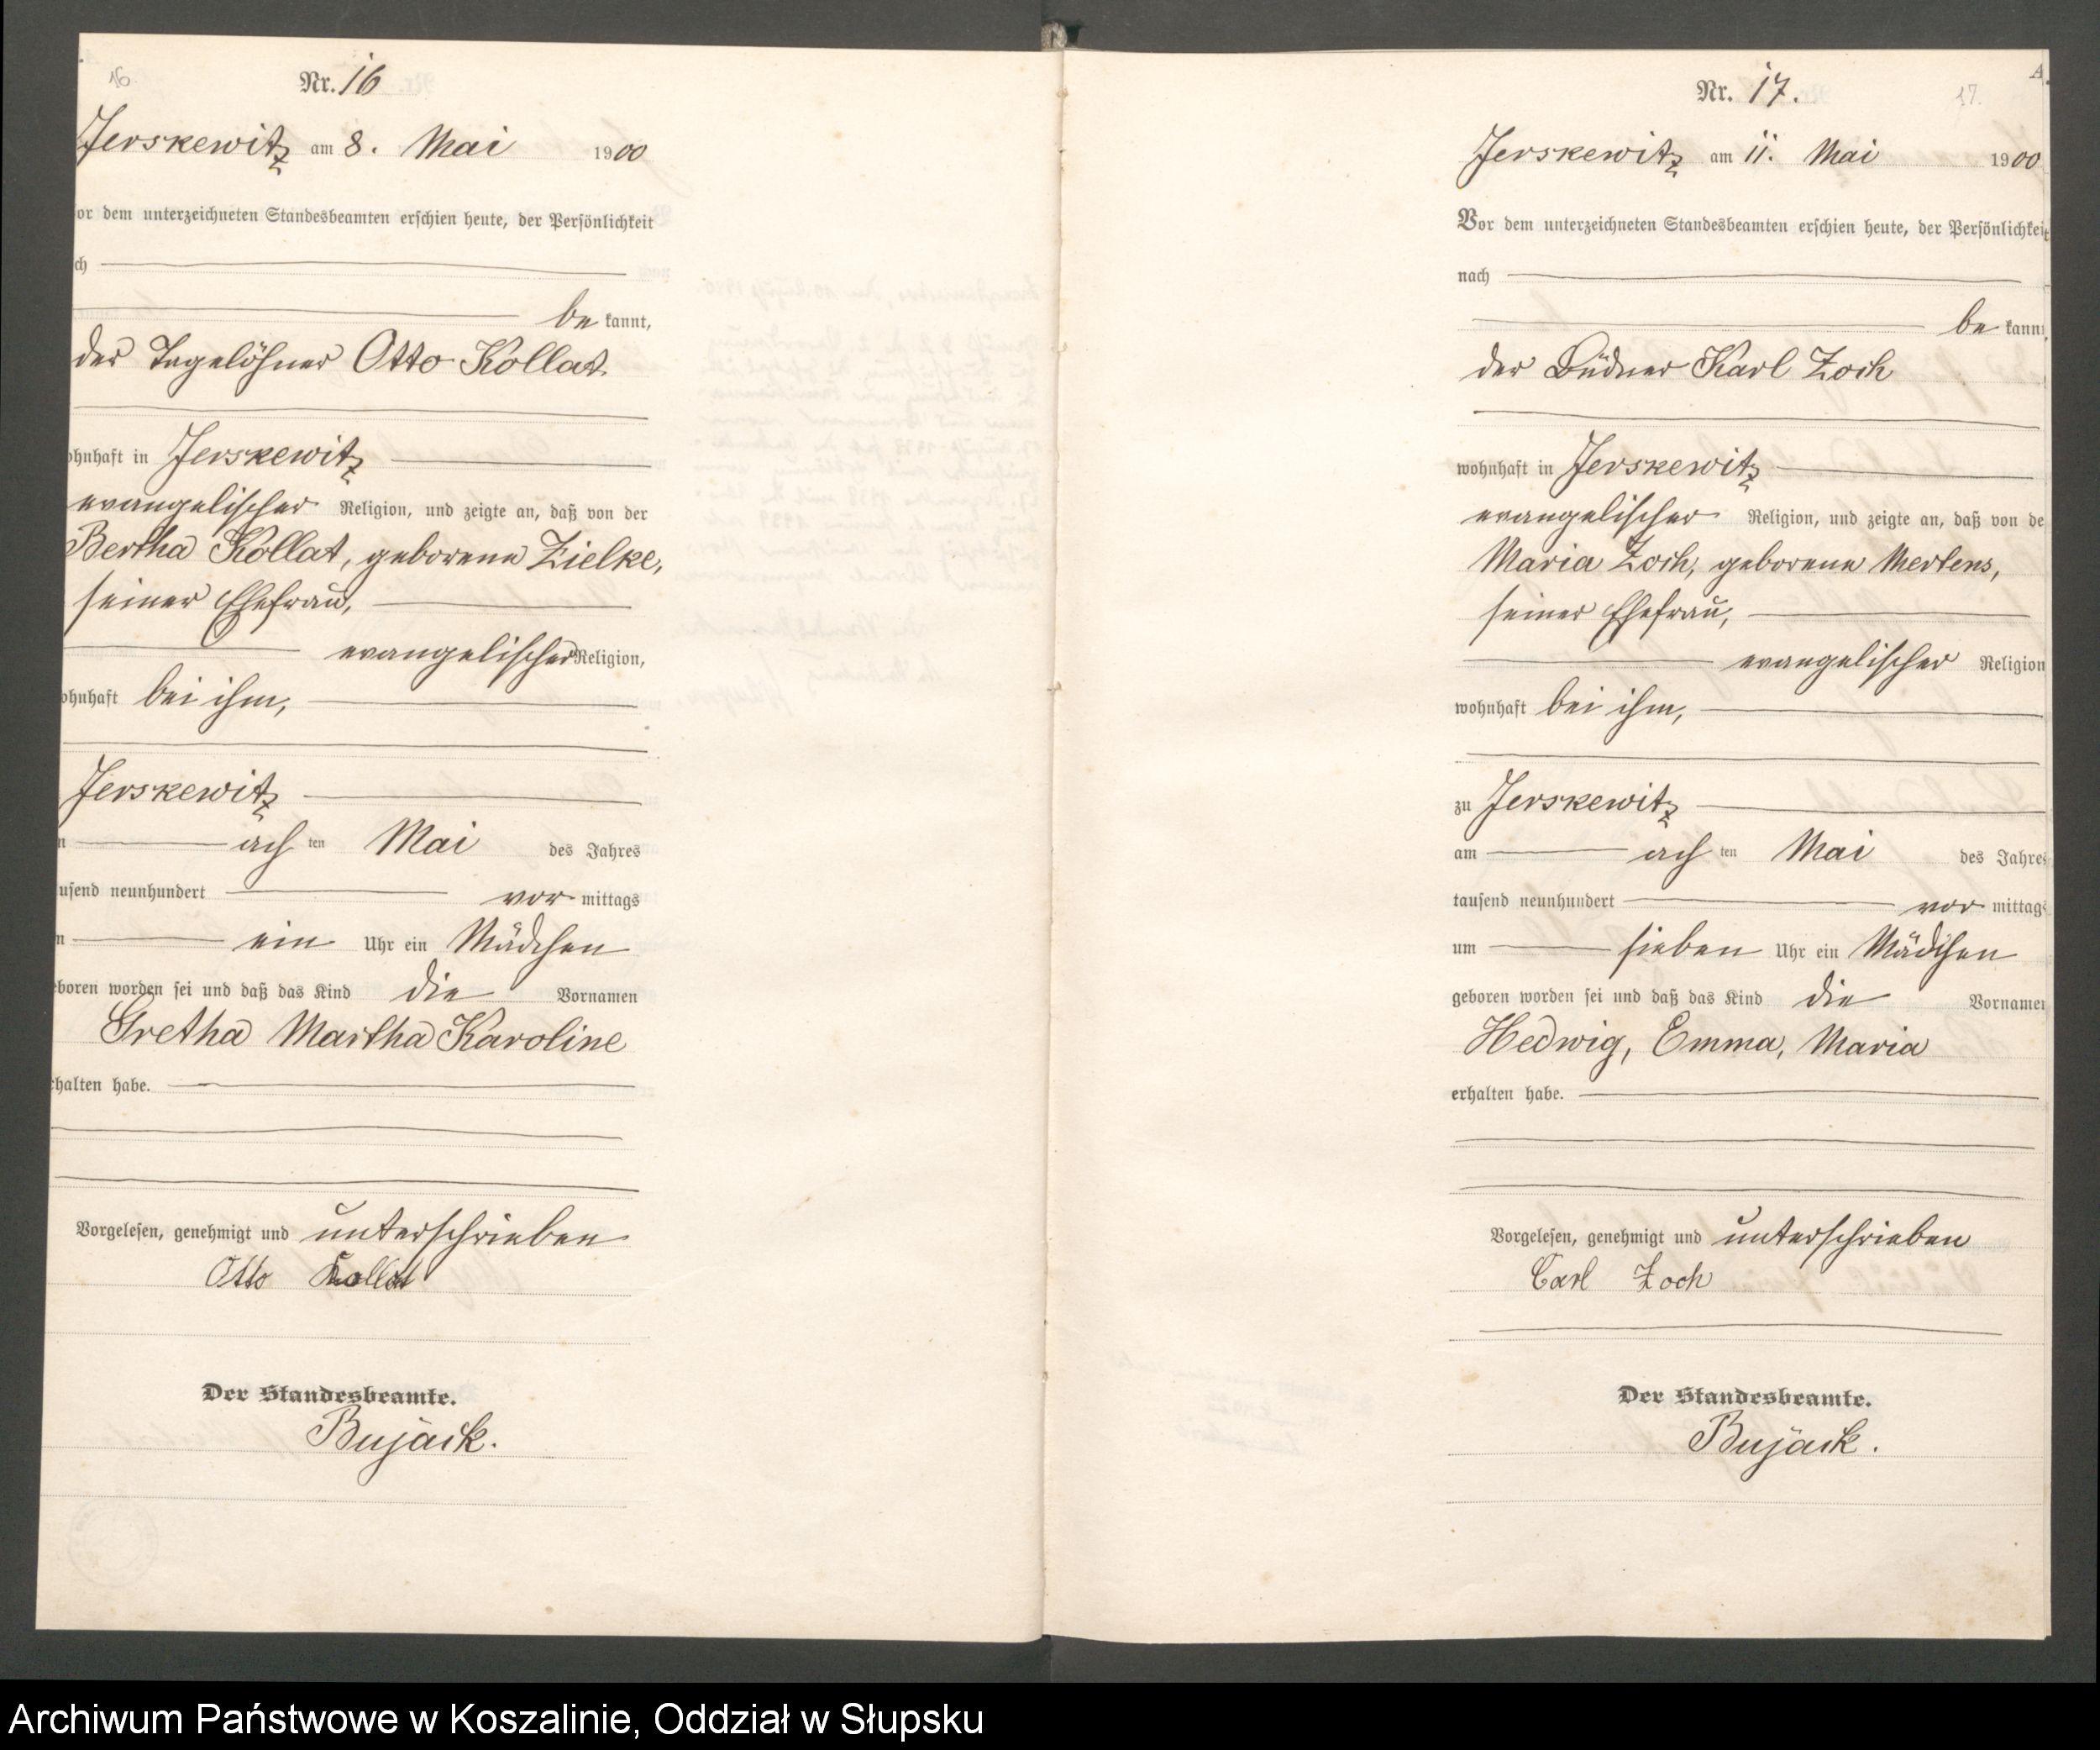 16.
Nr. 16
Jerskewitz am 8. Mai 1900
or dem unterzeichneten Standesbeamten erschien heute, der Persönlichkeit
ch
be kannt,
der Tagelöhner Otto Kollat
ohnhaft in Jerskewitz
evangelischer Religion, und zeigte an, daß von der
Bertha Kollat, geborene Zielke,
seiner Ehefrau,
evangelischer Religion,
ohnhaft bei ihm,
Jerskewitz
n ach ten Mai des Jahres
usend neunhundert vor mittags
n ein Uhr ein Mädchen
eboren worden sei und daß das Kind die Vornamen
Gretha Martha Karoline
rhalten habe.
Vorgelesen, genehmigt und unterschrieben
Otto Kollat
Der Standesbeamte.
Bujack.
A.
Nr. 17. 17.
Jerskewitz am 11. Mai 1900
Vor dem unterzeichneten Standesbeamten erschien heute, der Persönlichkeit
nach
be kannt,
der Büdner Karl Zoch
wohnhaft in Jerskewitz
evangelischer Religion, und zeigte an, daß von de
Maria Zoch, geborene Mertens,
seiner Ehefrau,
evangelischer Religion
wohnhaft bei ihm,
zu Jerskewitz
am ach ten Mai des Jahres
tausend neunhundert vor mittags
um sieben Uhr ein Mädchen
geboren worden sei und daß das Kind die Vornamen
Hedwig, Emma, Maria
erhalten habe.
Vorgelesen, genehmigt und unterschrieben
Carl Zoch
Der Standesbeamte.
Bujack.
Archiwum Państwowe w Koszalinie, Oddział w Słupsku